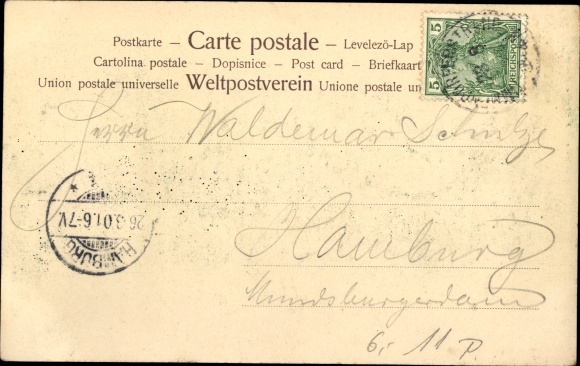 Postkarte – Carte postale – Levelezö-Lap
Cartolina postale – Dopisnice – Post card – Briefkaart
Union postale universelle Weltpostverein Unione postale un
5 5
REICHSPOST
Herrn Waldemar Schulze
Hamburg
Mundsburgerdamm
6, 11 P.
HAMBURG
26.3.01.6-7V.